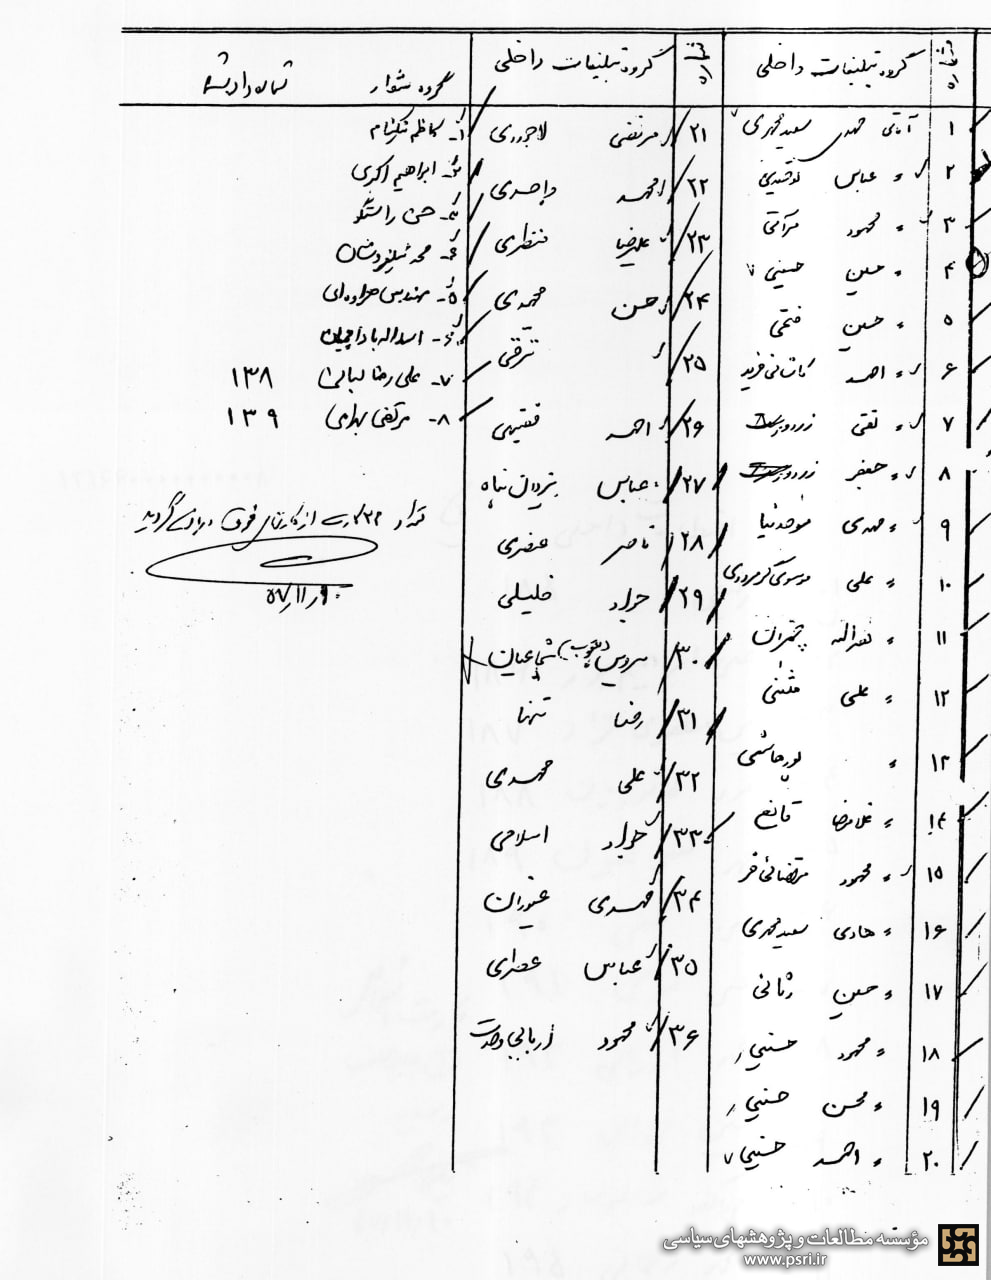 شماره گروه تبلیغات داخلی
۱ آقای مهدی سعید محمدی
۲ " عباس نوشیدی
۳ " محمود مرآتی
۴ " حسین حسینی
۵ " حسین فتحی
۶ " احمد کاشانی فرید
۷ " تقی
۸ " جعفر
۹ " مهدی موحدنیا
۱۰ " علی موسوی گرمرودی
۱۱ " نصراله چمران
۱۲ " علی مثنی
۱۳ " پورهاشمی
۱۴ " غلامرضا قانع
۱۵ " محمود مرتضائی فر
۱۶ " هادی سعید محمدی
۱۷ " حسین
۱۸ " محمود حسینی
۱۹ " محسن حسینی
۲۰ " احمد حسینی
شماره گروه تبلیغات داخلی
۲۱ مرتضی لاجوردی
۲۲ احمد واحدی
۲۳ علیرضا منتظری
۲۴ حسن محمدی
۲۵ ترقی
۲۶ احمد فقیهی
۲۷ عباس یزدان پناه
۲۸ ناصر عنصری
۲۹ جواد خلیلی
۳۰ سیروس (یعقوب) شجاعیان
۳۱ رضا تنها
۳۲ علی محمدی
۳۳ جواد اسلامی
۳۴ مهدی غیوران
۳۵ عباس عطاری
۳۶ محمود اربابی وحدت
گروه شعار شماره
۱- کاظم نیکنام
۲- ابراهیم اکبری
۳- حسن راستگو
۴- محمد
۵- مهندس
۶- اسداله بادامچیان
۷- علی رضا لبانی ۱۳۸
۸- مرتضی بهرامی ۱۳۹
تعداد از کارتهای فوق دریافت گردید
۵۷/۱۱/
مؤسسه مطالعات و پژوهشهای سیاسی
www.psri.ir